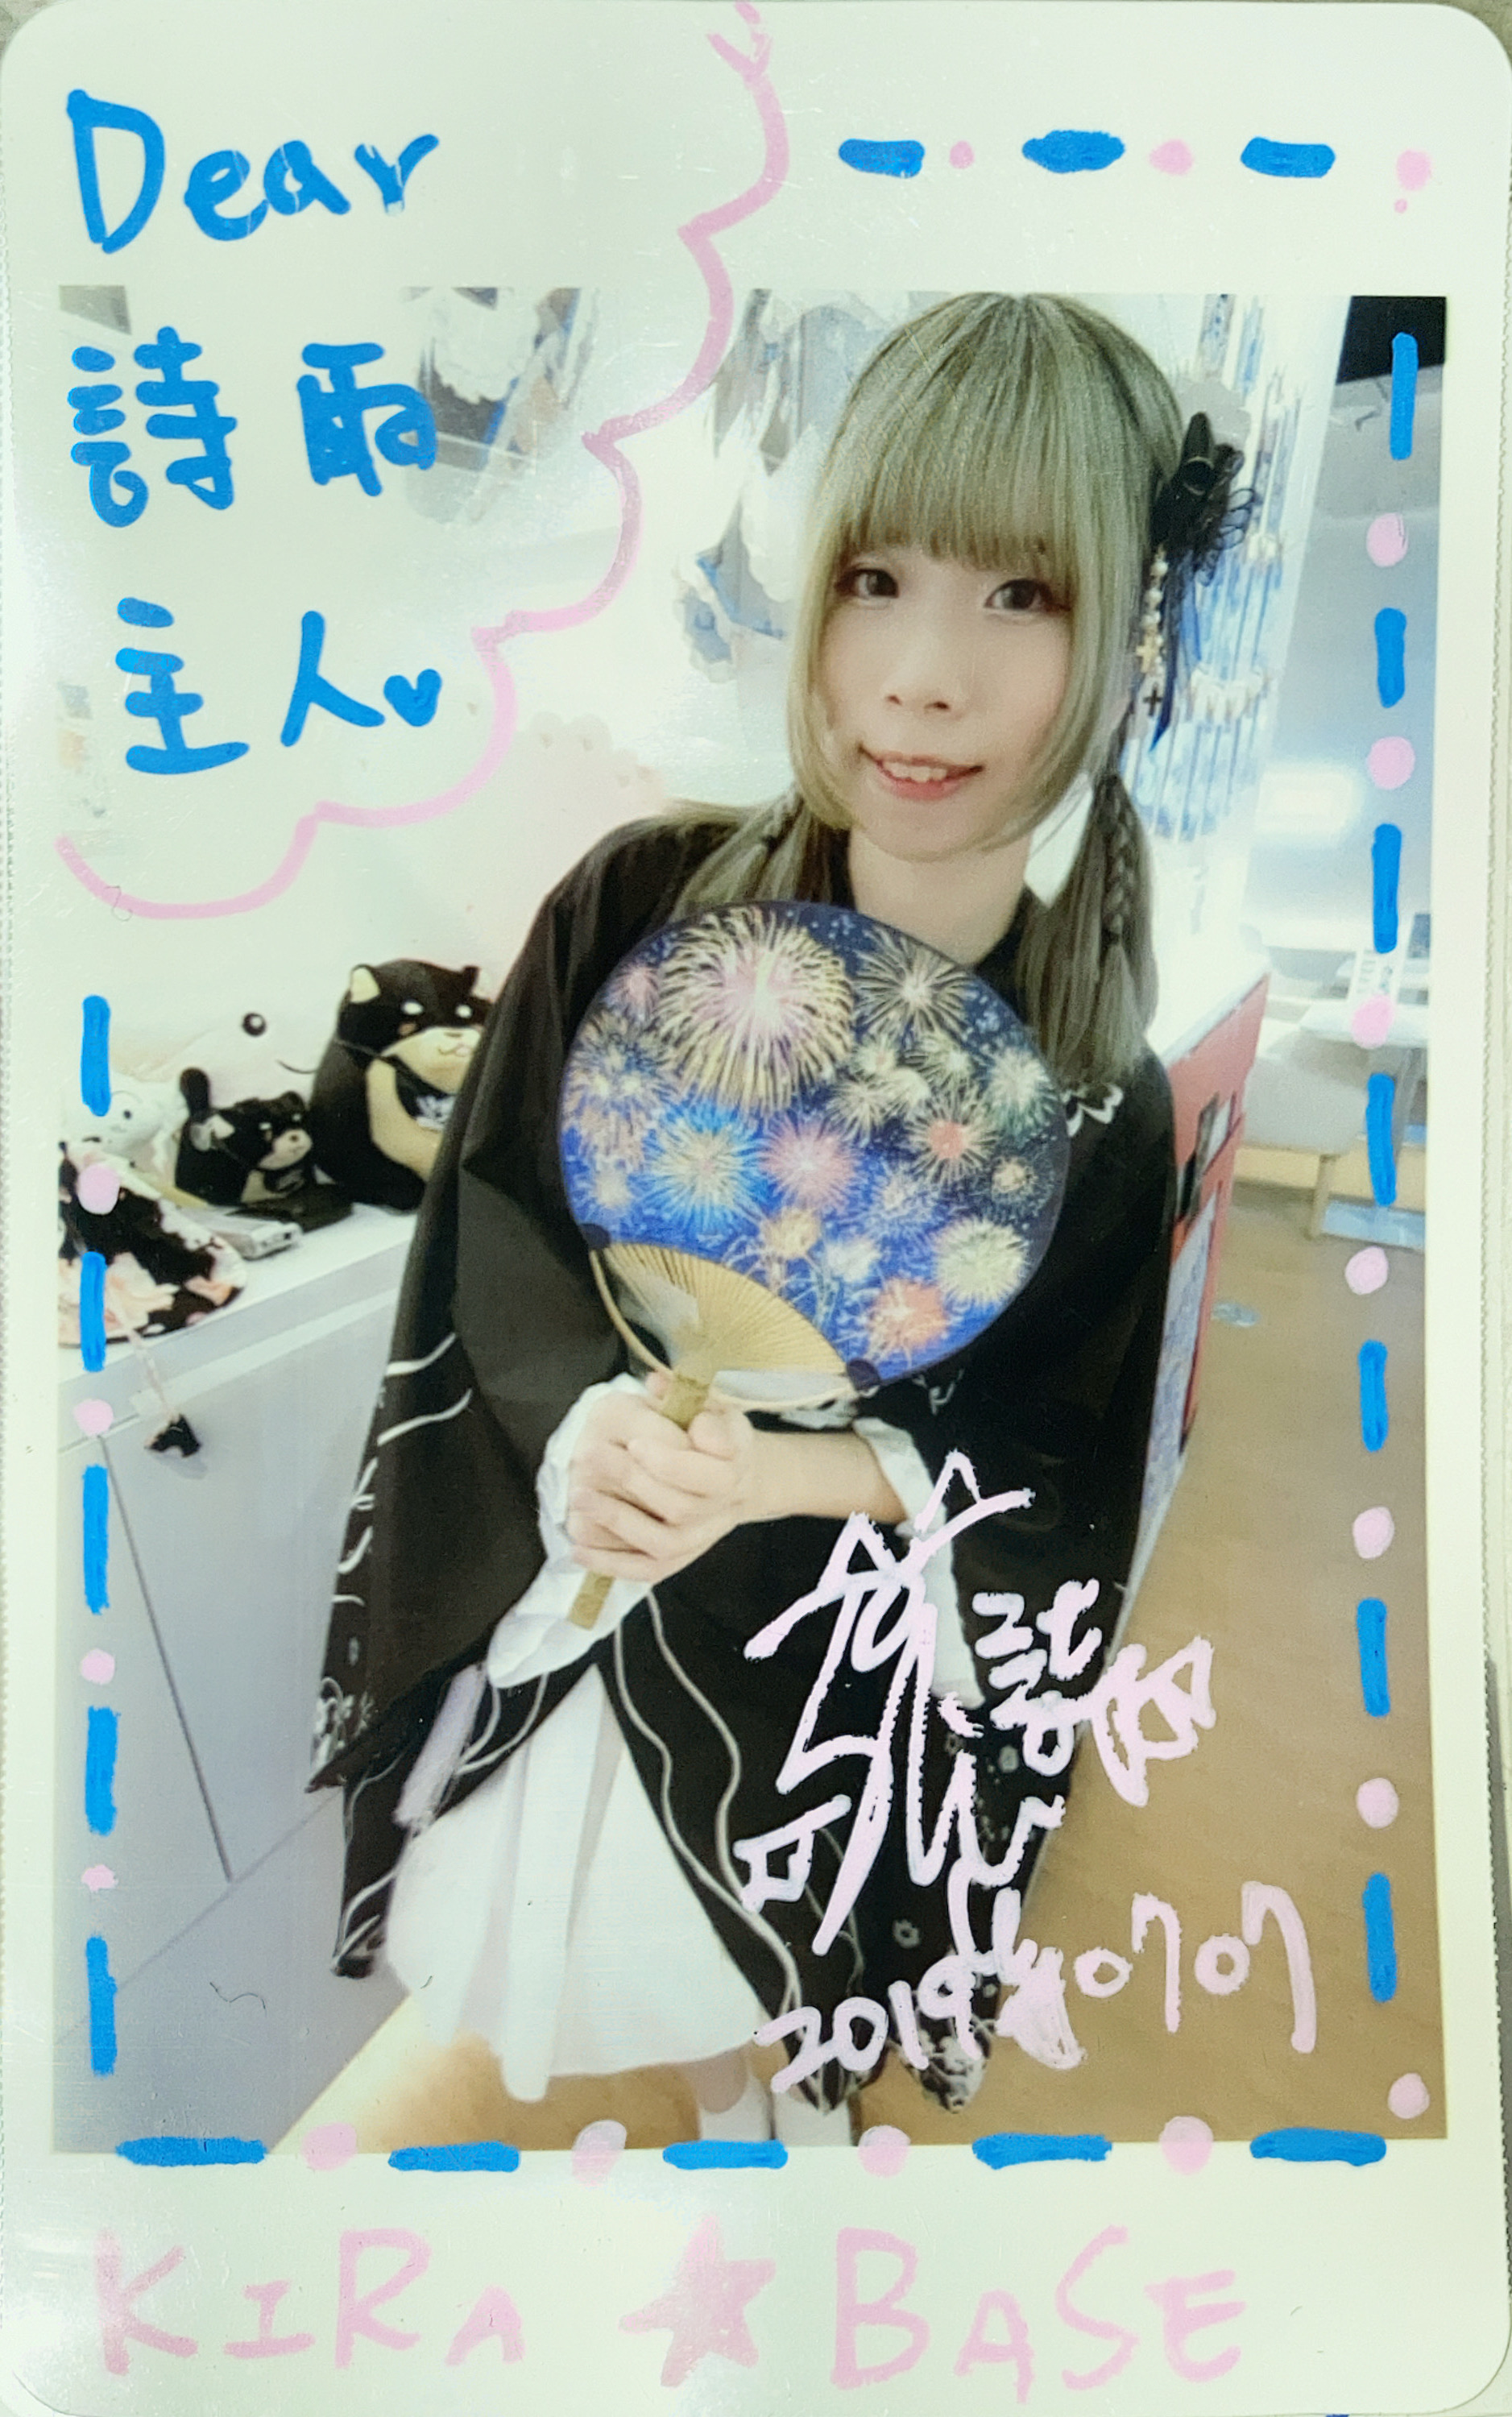 Dear
詩雨
主人♥
20190707
KIRA★BASE